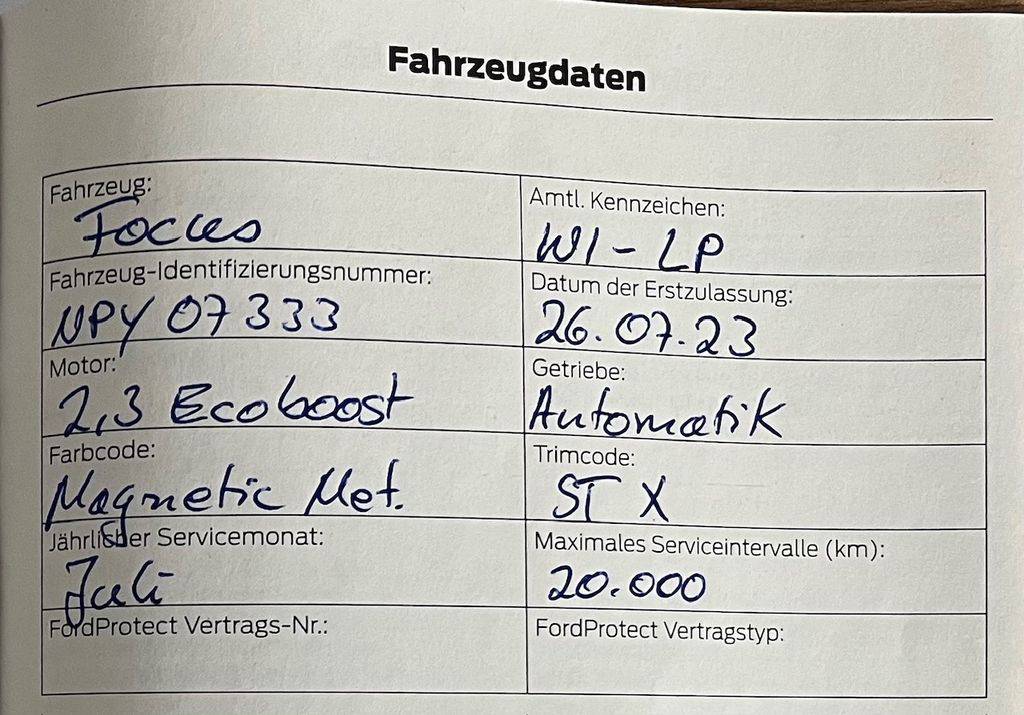 Fahrzeugdaten
Fahrzeug:
Focus
Amtl. Kennzeichen:
WI-LP
Fahrzeug-Identifizierungsnummer:
NPY 07333
Datum der Erstzulassung:
26.07.23
Motor:
2,3 Ecoboost
Getriebe:
Automatik
Farbcode:
Magnetic Met.
Trimcode:
ST X
Jährlicher Servicemonat:
Juli
Maximales Serviceintervalle (km):
20.000
FordProtect Vertrags-Nr.:
FordProtect Vertragstyp: